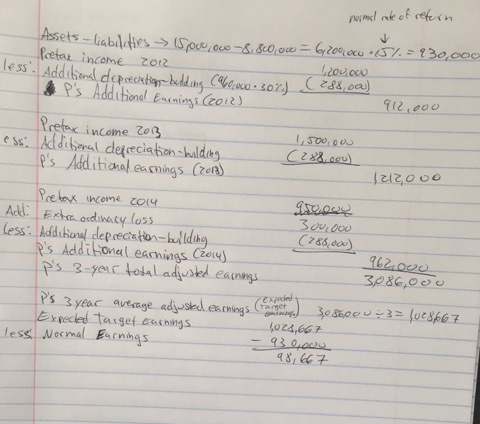 normal rate of return
↓
Assets - liabilities → 15,000,000 - 8,800,000 = 6,200,000 · 15% = 930,000
Pretax income 2012 1,200,000
less: Additional depreciation-building (960,000 · 30%) (288,000)
P's Additional Earnings (2012) 912,000
Pretax income 2013 1,500,000
less: Additional depreciation-building (288,000)
P's Additional earnings (2013) 1,212,000
Pretax income 2014 950,000
Add: Extra ordinary loss 300,000
Less: Additional depreciation-building (288,000)
P's Additional earnings (2014) 962,000
P's 3-year total adjusted earnings 3,086,000
P's 3 year average adjusted earnings (Expected Target earnings) 3,086,000 ÷ 3 = 1,028,667
Expected Target Earnings 1,028,667
less Normal Earnings - 930,000
98,667